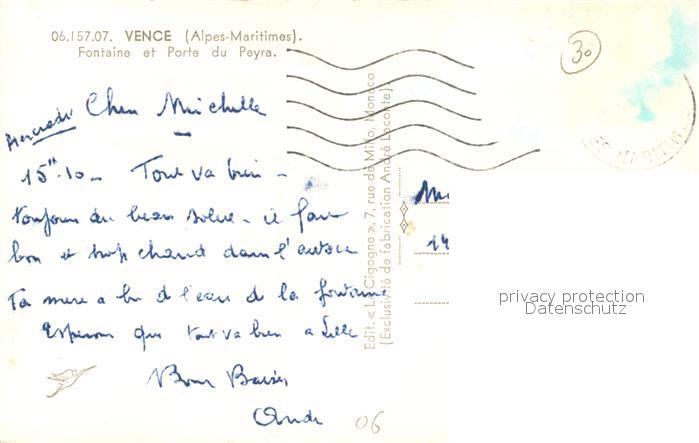 06.157.07. VENCE (Alpes-Maritimes).
Fontaine et Porte du Peyra.
30
Mercredi
Chere Michelle
15h10 - Tout va bien -
toujours du beau soleil - il fait
bon et trop chaud dans l'autocar
Ta mere a bu de l'eau de la fontaine
Esperons que tout va bien a Lille
Bons Baisers
06
Edit. « La Cigogne », 7, rue de Millo, Monaco
(Exclusivité de fabrication André Leconte)
privacy protection
Datenschutz